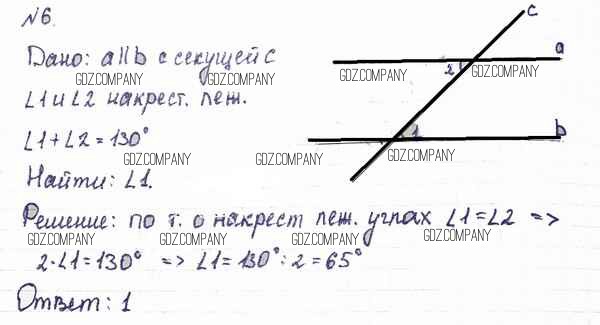 №6.
Дано: a||b с секущей c
∠1 и ∠2 накрест. леж.
∠1+∠2=130°
Найти: ∠1.
c
a
2
1
b
Решение: по т. о накрест леж. углах ∠1=∠2 =>
2·∠1=130° => ∠1=130°:2=65°
Ответ: 1
GDZ.COMPANY
GDZ.COMPANY
GDZ.COMPANY
GDZ.COMPANY
GDZ.COMPANY
GDZ.COMPANY
GDZ.COMPANY
GDZ.COMPANY
GDZ.COMPANY
GDZ.COMPANY
GDZ.COMPANY